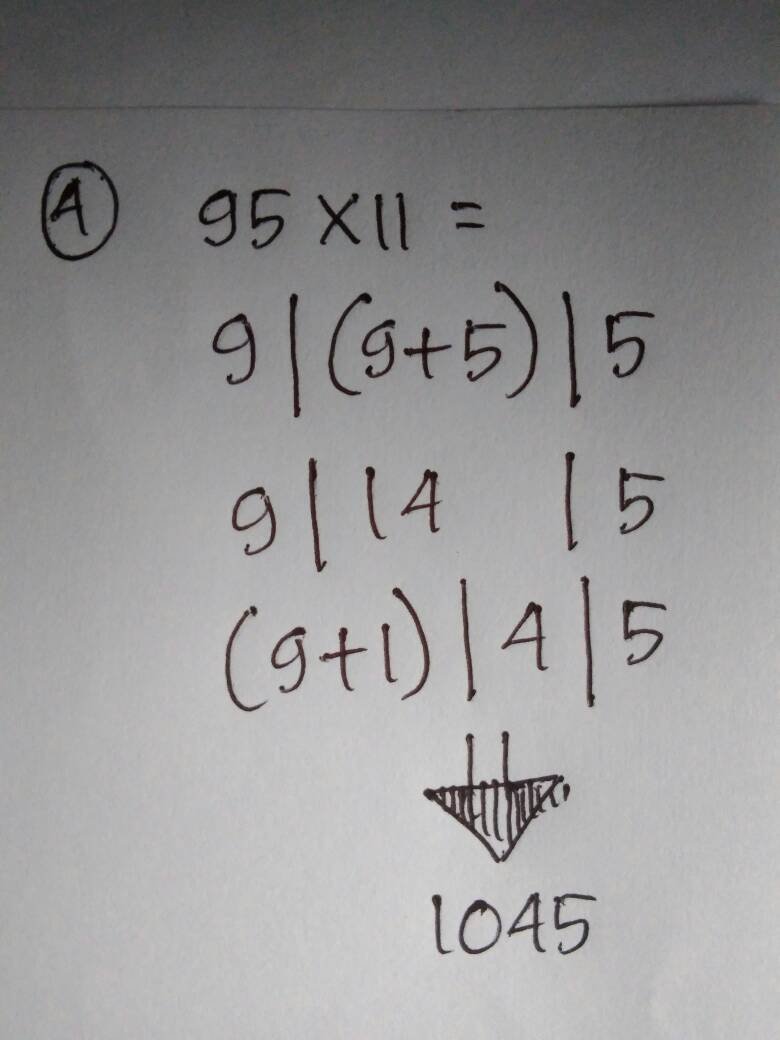 ④ 95 x 11 =
9 | (9+5) | 5
9 | 14 | 5
(9+1) | 4 | 5
1045